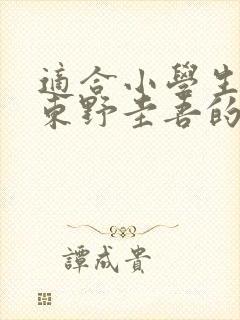 適合小學生
東野圭吾的
譚成貴